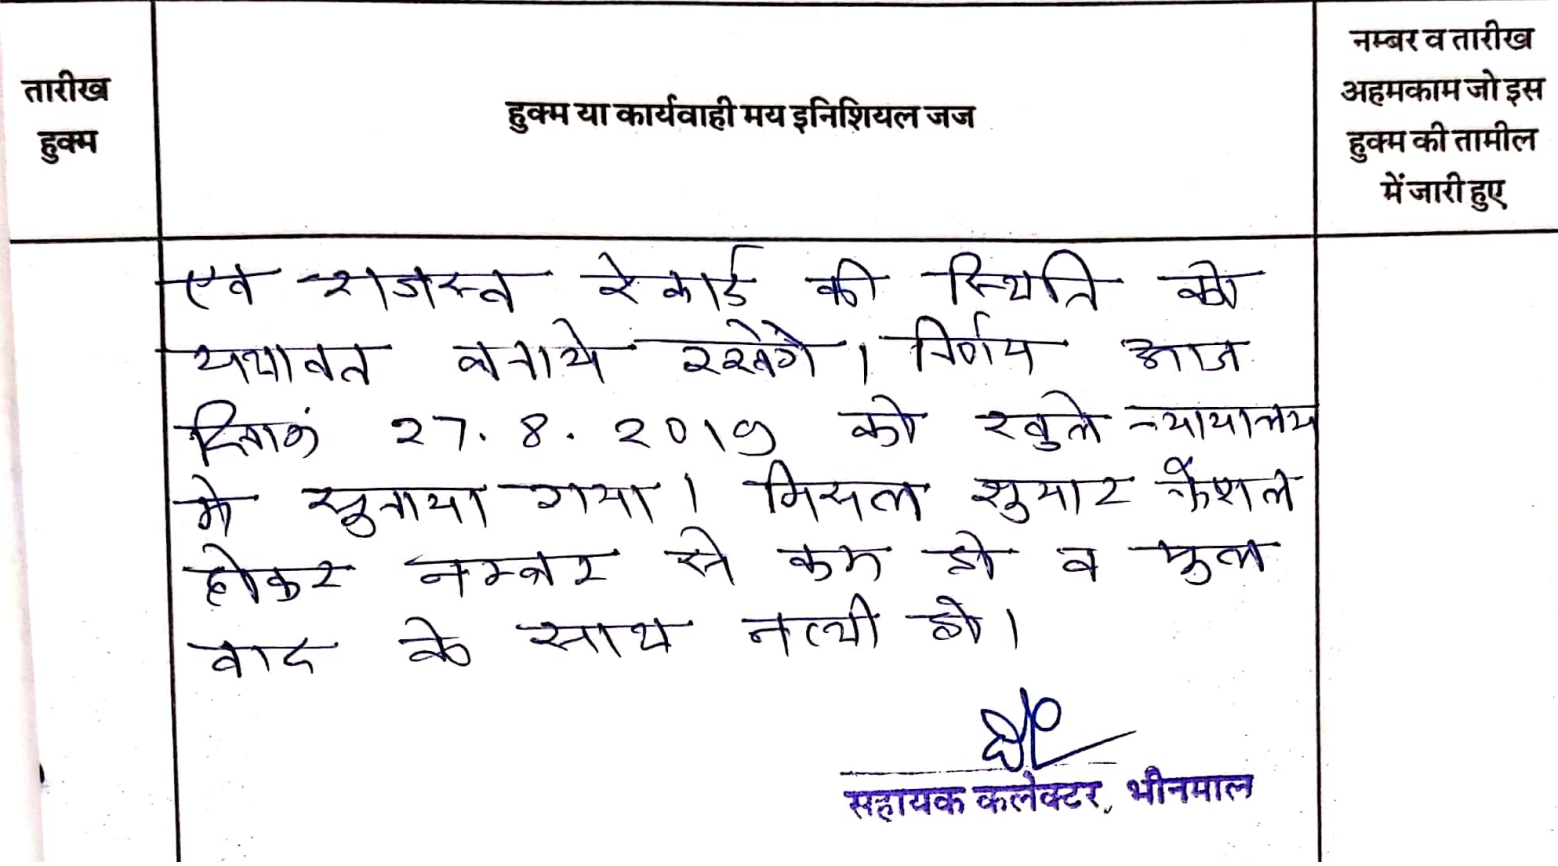 तारीख
हुक्म
हुक्म या कार्यवाही मय इनिशियल जज
नम्बर व तारीख
अहमकाम जो इस
हुक्म की तामील
में जारी हुए
एवं राजस्व रेकार्ड की स्थिति को
यथावत बनाये रखेगे। निर्णय आज
दिनांक 27.8.2019 को खुले न्यायालय
मे सुनाया गया। मिसल शुमार फैशल
होकर नम्बर से कम हो व मुल
वाद के साथ नत्थी हो।
सहायक कलेक्टर, भीनमाल